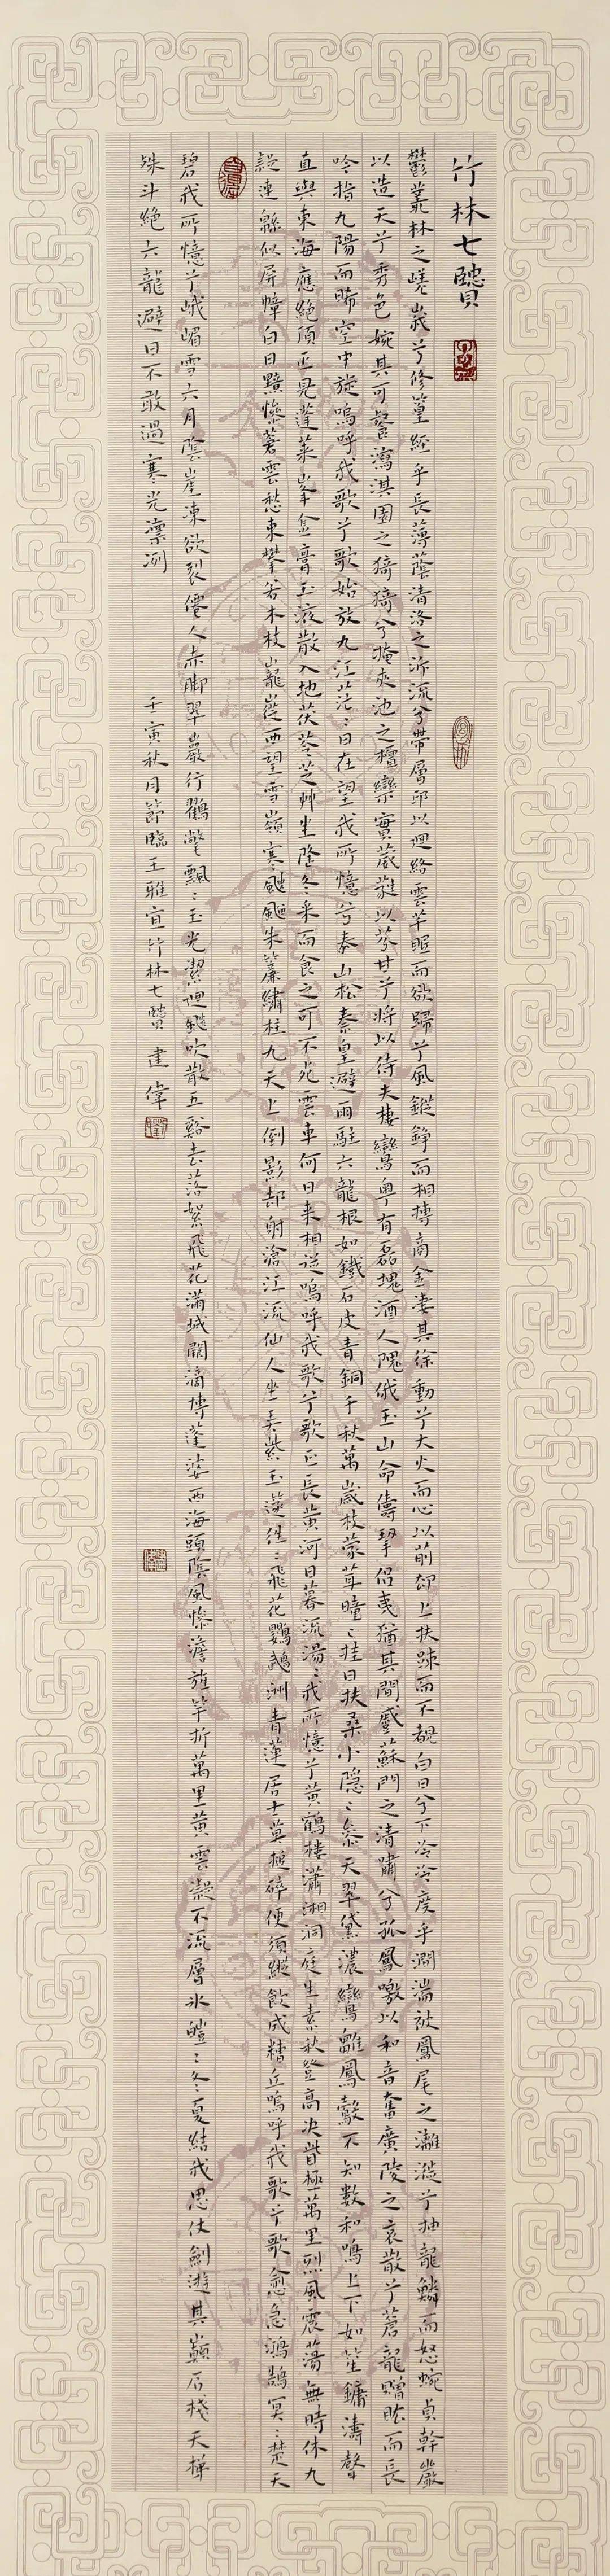 竹林七賢
鬱叢林之嵯峩兮修篁經乎長薄蔭清洛之泝流兮帶層邱以迴絡雲芊眠而欲歸兮風鏦錚而相搏商金淒其徐動兮大火而心以前却上扶疎而不覩白日兮下泠泠度乎澗湍被鳳尾之灕漇兮抽龍鱗而怒蜿貞幹巌
以造天兮秀色婉其可餐瀉淇園之猗猗兮掩夾池之檀欒實葳蕤以芬甘兮將以待夫棲鸞粵有磊塊酒人隗俄玉山命儔挈侶夷猶其間感蘇門之清嘯兮孤鳳噭以和音奮廣陵之哀散兮蒼龍矰眩而長
吟指九陽而晞空中旋嗚呼我歌兮歌始放九江茫茫日在望我所憶兮泰山松秦皇避雨駐六龍根如鐵石皮青銅千秋萬歲枝蒙茸曈曈挂日扶桑小隱隱叅天翠黛濃鸞雛鳳鷇不知數和鳴上下如笙鏞濤聲
直與東海應絶頂正見蓬萊峯金膏玉液散入地茯苓芝艸坐隆冬采而食之可不死雲車何日来相送嗚呼我歌兮歌正長黃河日暮流湯湯我所憶兮黃鶴樓瀟湘洞庭生素秋登高決眥極萬里烈風震蕩無時休九
疑連緜似屏幛白日黯慘蒼雲愁東攀若木枝巃嵸西望雪嶺寒颼颼朱簾繡柱九天上倒影却射滄江流仙人坐弄紫玉篴往往飛花鸚鵡洲青蓮居士莫搥碎便須縱飲成糟丘嗚呼我歌兮歌愈急鴻鵠冥冥楚天
碧我所憶兮峨嵋雪六月陰崖凍欲裂僊人赤脚翠巖行鸐氅飄飄玉光潔迴颷吹散五谿去落絮飛花滿城闕滴博蓬婆西海頭陰風慘澹旌竿折萬里黃雲凝不流層氷皚皚冬夏結我思仗劍遊其巔石棧天梯
殊斗絶六龍避日不敢過寒光凛冽
壬寅秋月節臨王雅宜竹林七賢 建偉